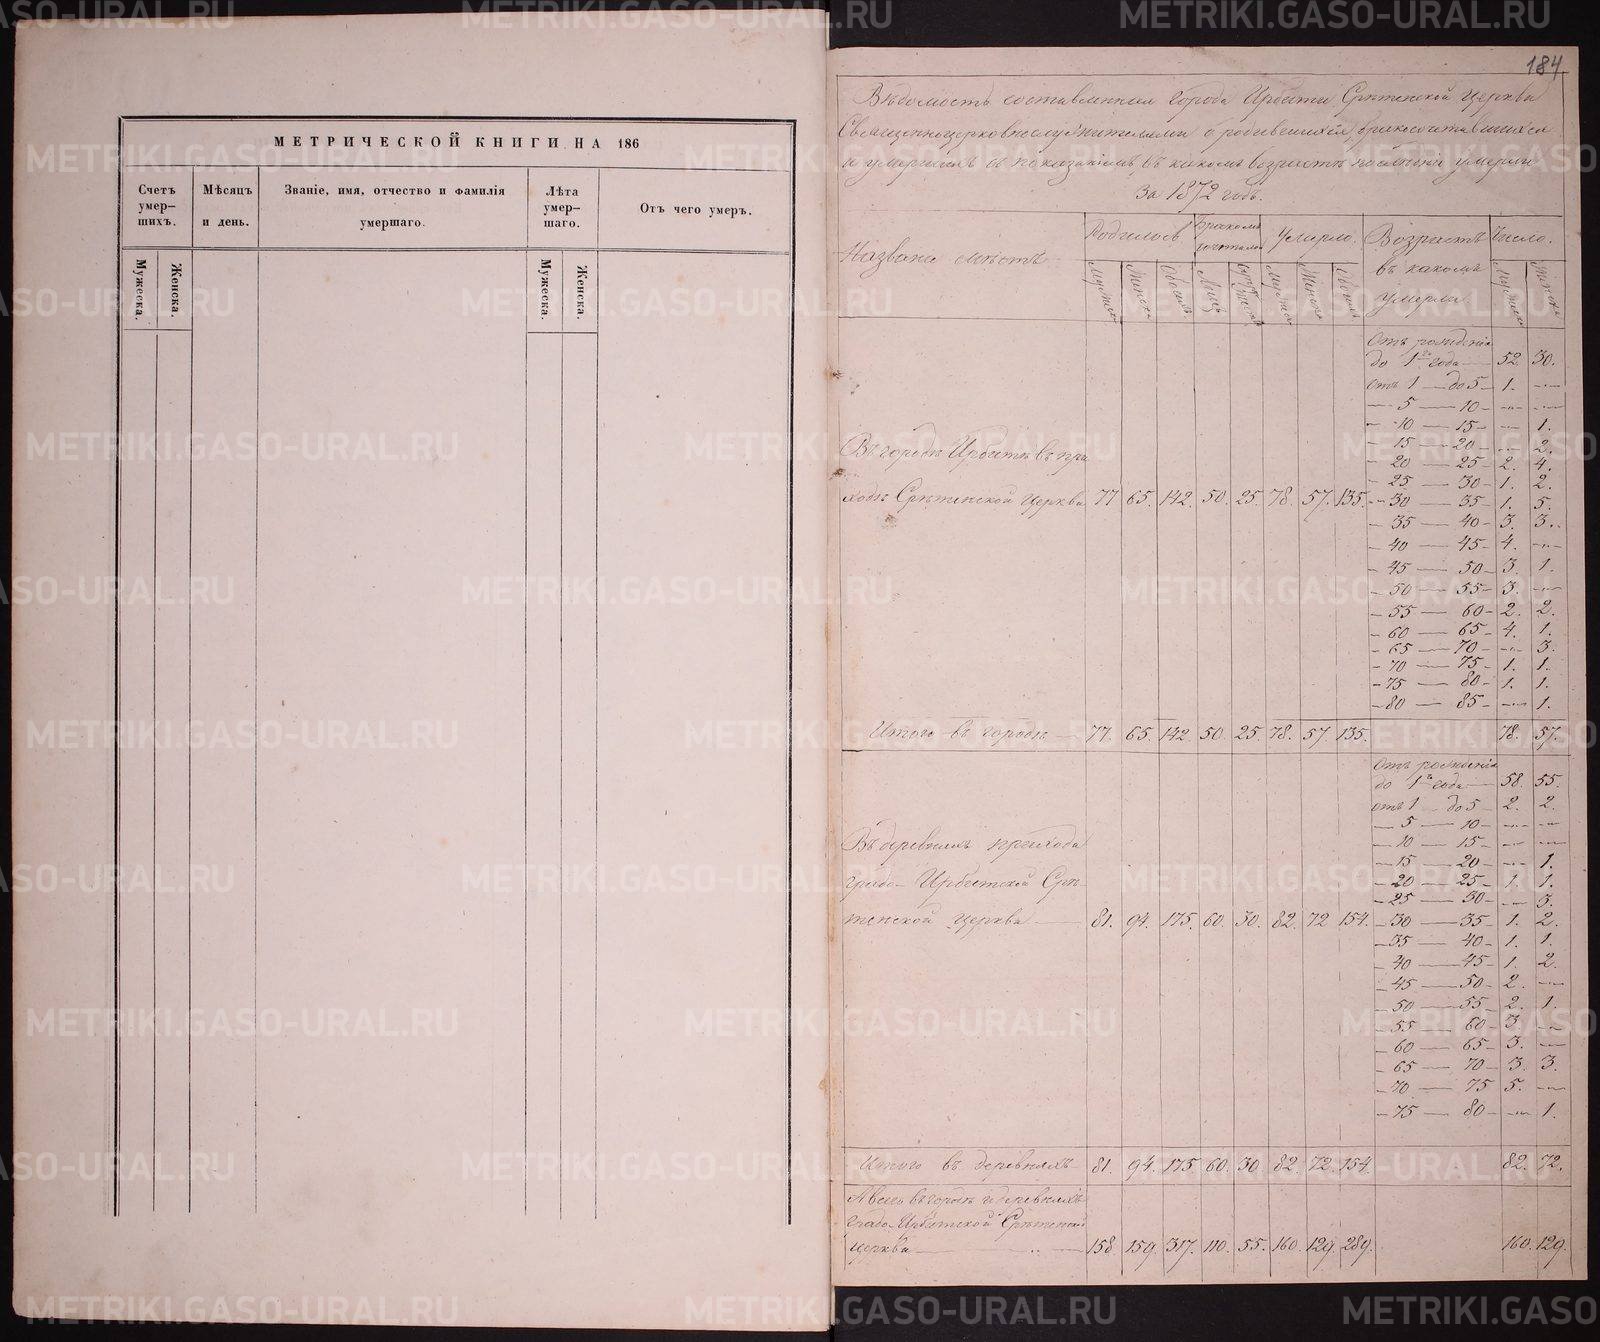 МЕТРИЧЕСКОЙ КНИГИ НА 186
Счетъ умер-шихъ. Мѣсяцъ и день. Званіе, имя, отчество и фамилія умершаго. Лѣта умер-шаго. Отъ чего умеръ.
Мужеска. Женска. Мужеска. Женска.
184
Вѣдомость составленная города Ирбити Срѣтенской Церкви
Священноцерковнослужителями о родившихся, бракосочетавшихся
и умершихъ съ показаніемъ, въ какомъ возрастѣ послѣдніе умерли
За 1872 годъ.
Названіе мѣстъ Родилось Бракомъ сочеталось Умерло. Возрастъ въ какомъ умерли Число.
Отъ рожденія
до 1го года — 52. 30.
отъ 1 — до 5 — 1. —
— 5 — 10 — — —
— 10 — 15 — — 1.
— 15 — 20 — — 2.
— 20 — 25 — 2. 4.
— 25 — 30 — 1. 2.
Въ городѣ Ирбити въ при-
ходѣ Срѣтенской Церкви 77 65. 142. 50. 25. 78. 57. 135. — 30 — 35 — 1. 5.
— 35 — 40 — 3. 3.
— 40 — 45 — 4. —
— 45 — 50 — 3. 1.
— 50 — 55 — 3. —
— 55 — 60 — 2. 2.
— 60 — 65 — 4. 1.
— 65 — 70 — — 3.
— 70 — 75 — 1. 1.
— 75 — 80 — 1. 1.
— 80 — 85 — — 1.
Итого въ городѣ — 77. 65. 142. 50. 25. 78. 57. 135. 78. 57.
Отъ рожденія
до 1го года — 58. 55.
отъ 1 — до 5 — 2. 2.
— 5 — 10 — — —
— 10 — 15 — — —
— 15 — 20 — — 1.
— 20 — 25 — 1. 1.
— 25 — 30 — — 3.
Въ деревняхъ прихода
градо-Ирбитской Срѣ-
тенской Церкви — 81. 94. 175. 60. 30. 82. 72 154. — 30 — 35 — 1. 2.
— 35 — 40 — 1. 1.
— 40 — 45 — 1. 2.
— 45 — 50 — 2. —
— 50 — 55 — 2. 1.
— 55 — 60 — 3. —
— 60 — 65 — 3. —
— 65 — 70 — 3. 3.
— 70 — 75 5. —
— 75 — 80 — — 1.
Итого въ деревняхъ — 81. 94. 175 60. 30. 82. 72. 154. 82. 72.
А всего въ городѣ и деревняхъ
градо-Ирбитской Срѣтенской
Церкви — 158. 159. 317. 110. 55. 160. 129. 289. 160. 129.
METRIKI.GASO-URAL.RU